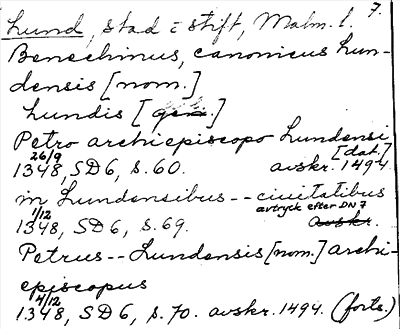 Lund, stad = stift, Malm. l. 7.
Benechinus, canonicus Lun-
densis [nom.]
Lundis [gen.]
Petro archiepiscopo Lundensi
[dat.]
26/9
1348, SD6, s. 60. avskr. 1494
in Lundensibus -- ciuitatibus
1/12 avtryck efter DN 7
1348, SD6, s. 69. avskr.
Petrus -- Lundensis [nom.] archi-
episcopus
4/12
1348, SD6, s. 70. avskr. 1494. (forts.)